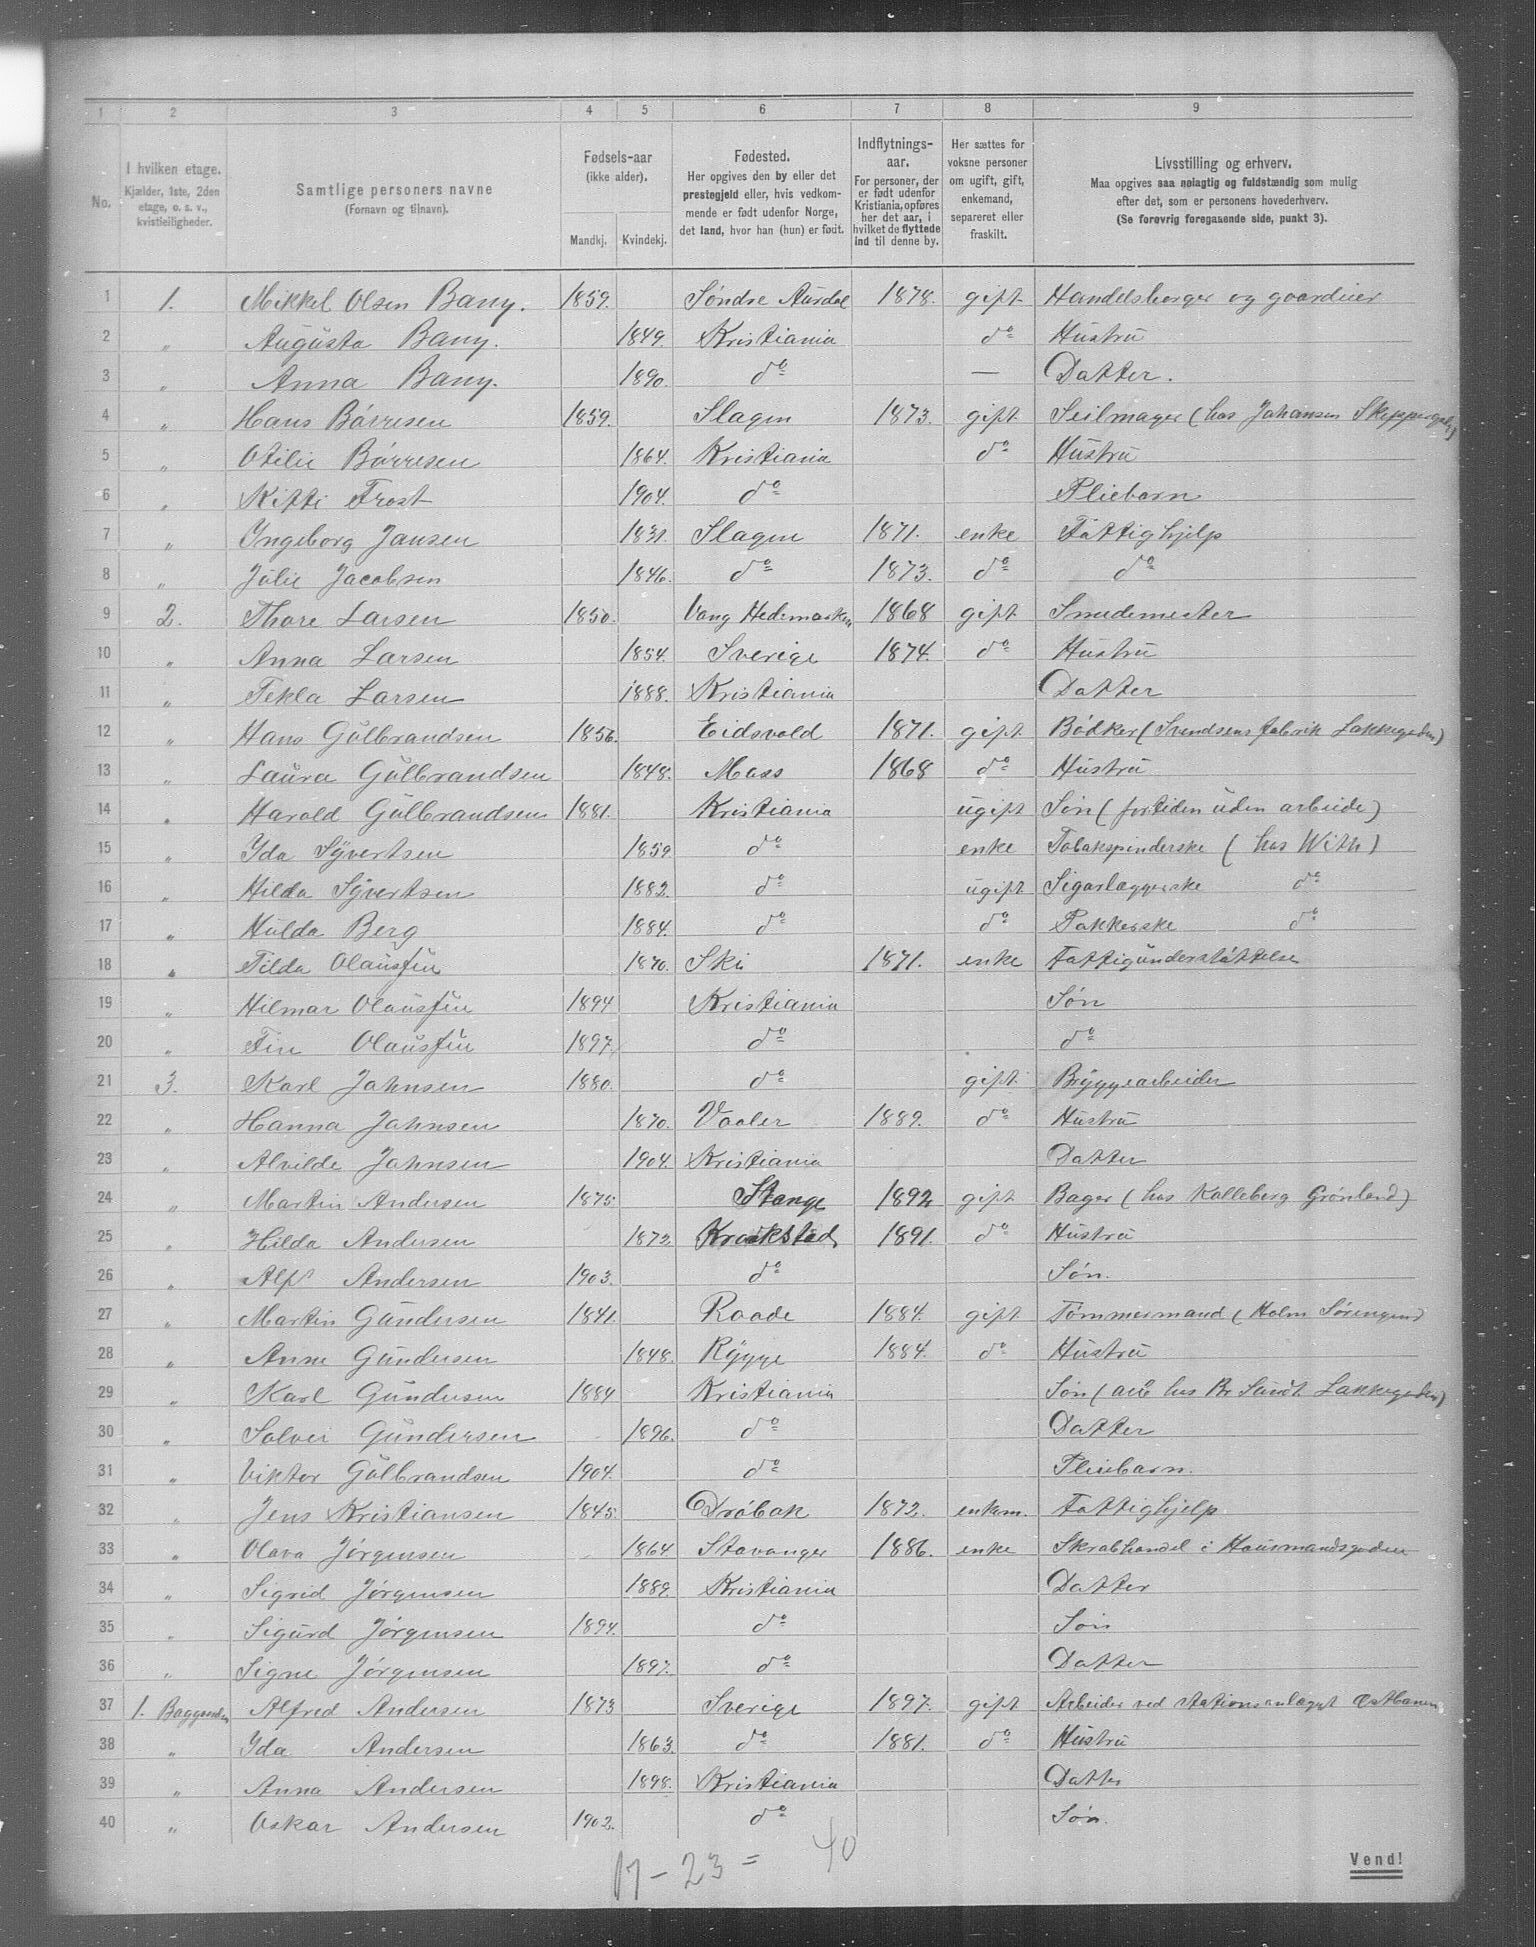 1 2 3 4 5 6 7 8 9
No. I hvilken etage. Kjælder, 1ste, 2den etage, o. s. v., kvistleiligheder. Samtlige personers navne (Fornavn og tilnavn). Fødsels-aar (ikke alder). Mandkj. Kvindekj. Fødested. Her opgives den by eller det prestegjeld eller, hvis vedkommende er født udenfor Norge, det land, hvor han (hun) er født. Indflytnings-aar. For personer, der er født udenfor Kristiania, opføres her det aar, i hvilket de flyttede ind til denne by. Her sættes for voksne personer om ugift, gift, enkemand, separeret eller fraskilt. Livsstilling og erhverv. Maa opgives saa nøiagtig og fuldstændig som mulig efter det, som er personens hovederhverv. (Se forøvrig foregaaende side, punkt 3).
1 1. Mikkel Olsen Bany. 1859. Søndre Aurdal 1878. gift Handelsborger og gaardeier
2 " Augusta Bany. 1849. Kristiania do Hustru
3 " Anna Bany. 1890. do — Datter.
4 " Hans Børresen 1859. Slagen 1873. gift Seilmager (hos Johansen
5 " Otilie Børresen 1864. Kristiania do Hustru
6 " Kitti Frost 1904. do Pliebarn
7 " Ingeborg Jansen 1831. Slagen 1871. enke Fattighjelp
8 " Julie Jacobsen 1846. do 1873. do do
9 2. Thore Larsen 1850. Vang Hedemarken 1868 gift Smedemester
10 " Anna Larsen 1854. Sverige 1874. do Hustru
11 " Tekla Larsen 1888. Kristiania Datter
12 " Hans Gulbrandsen 1856. Eidsvold 1871. gift Bødker (Svendsens fabrik Lakkegaden)
13 " Laura Gulbrandsen 1848. Moss 1868 do Hustru
14 " Harald Gulbrandsen 1881. Kristiania ugift Søn (fortiden uden arbeide)
15 " Ida Syvertsen 1859 do enke Tobakspinderske (hos With)
16 " Hilda Syvertsen 1882. do ugift Sigarlæggerske do
17 " Hulda Berg 1884. do do Pakkerske do
18 " Tilda Olausfen 1870. Ski 1871. enke Fattigunderstøttelse
19 " Hilmar Olausfen 1894 Kristiania Søn
20 " Fin Olausfen 1897. do do
21 3. Karl Jahnsen 1880. do gift Bryggearbeider
22 " Hanna Jahnsen 1870. Vaaler 1889. do Hustru
23 " Alvilde Jahnsen 1904. Kristiania Datter
24 " Martin Andersen 1875 Stange 1892 gift Bager (hos Kolleberg Grønland)
25 " Hilda Andersen 1872 Kraakstad 1891. do Hustru
26 " Alf Andersen 1903. do Søn.
27 " Martin Gundersen 1841. Raade 1884. gift Tømmermand (Holm Sørengund
28 " Anne Gundersen 1848. Rygge 1884. do Hustru
29 " Karl Gundersen 1884 Kristiania Søn ( hos Lakkegaden)
30 " Solvei Gundersen 1896. do Datter
31 " Viktor Gulbrandsen 1904. do Pliebarn.
32 " Jens Kristiansen 1845. Drøbak 1872. enkem. Fattighjelp
33 " Olava Jørgensen 1864 Stavanger 1886. enke Skrabhandel i Hausmandsgaden
34 " Sigrid Jørgensen 1889. Kristiania Datter
35 " Sigurd Jørgensen 1894. do Søn
36 " Signe Jørgensen 1897. do Datter
37 1. Baggaarden Alfred Andersen 1873 Sverige 1897. gift Arbeider ved Stationsanlægget Østbanen
38 " Ida Andersen 1863. do 1881. do Hustru
39 " Anna Andersen 1898. Kristiania Datter
40 " Oskar Andersen 1902. do Søn.
17 - 23 = 40
Vend!